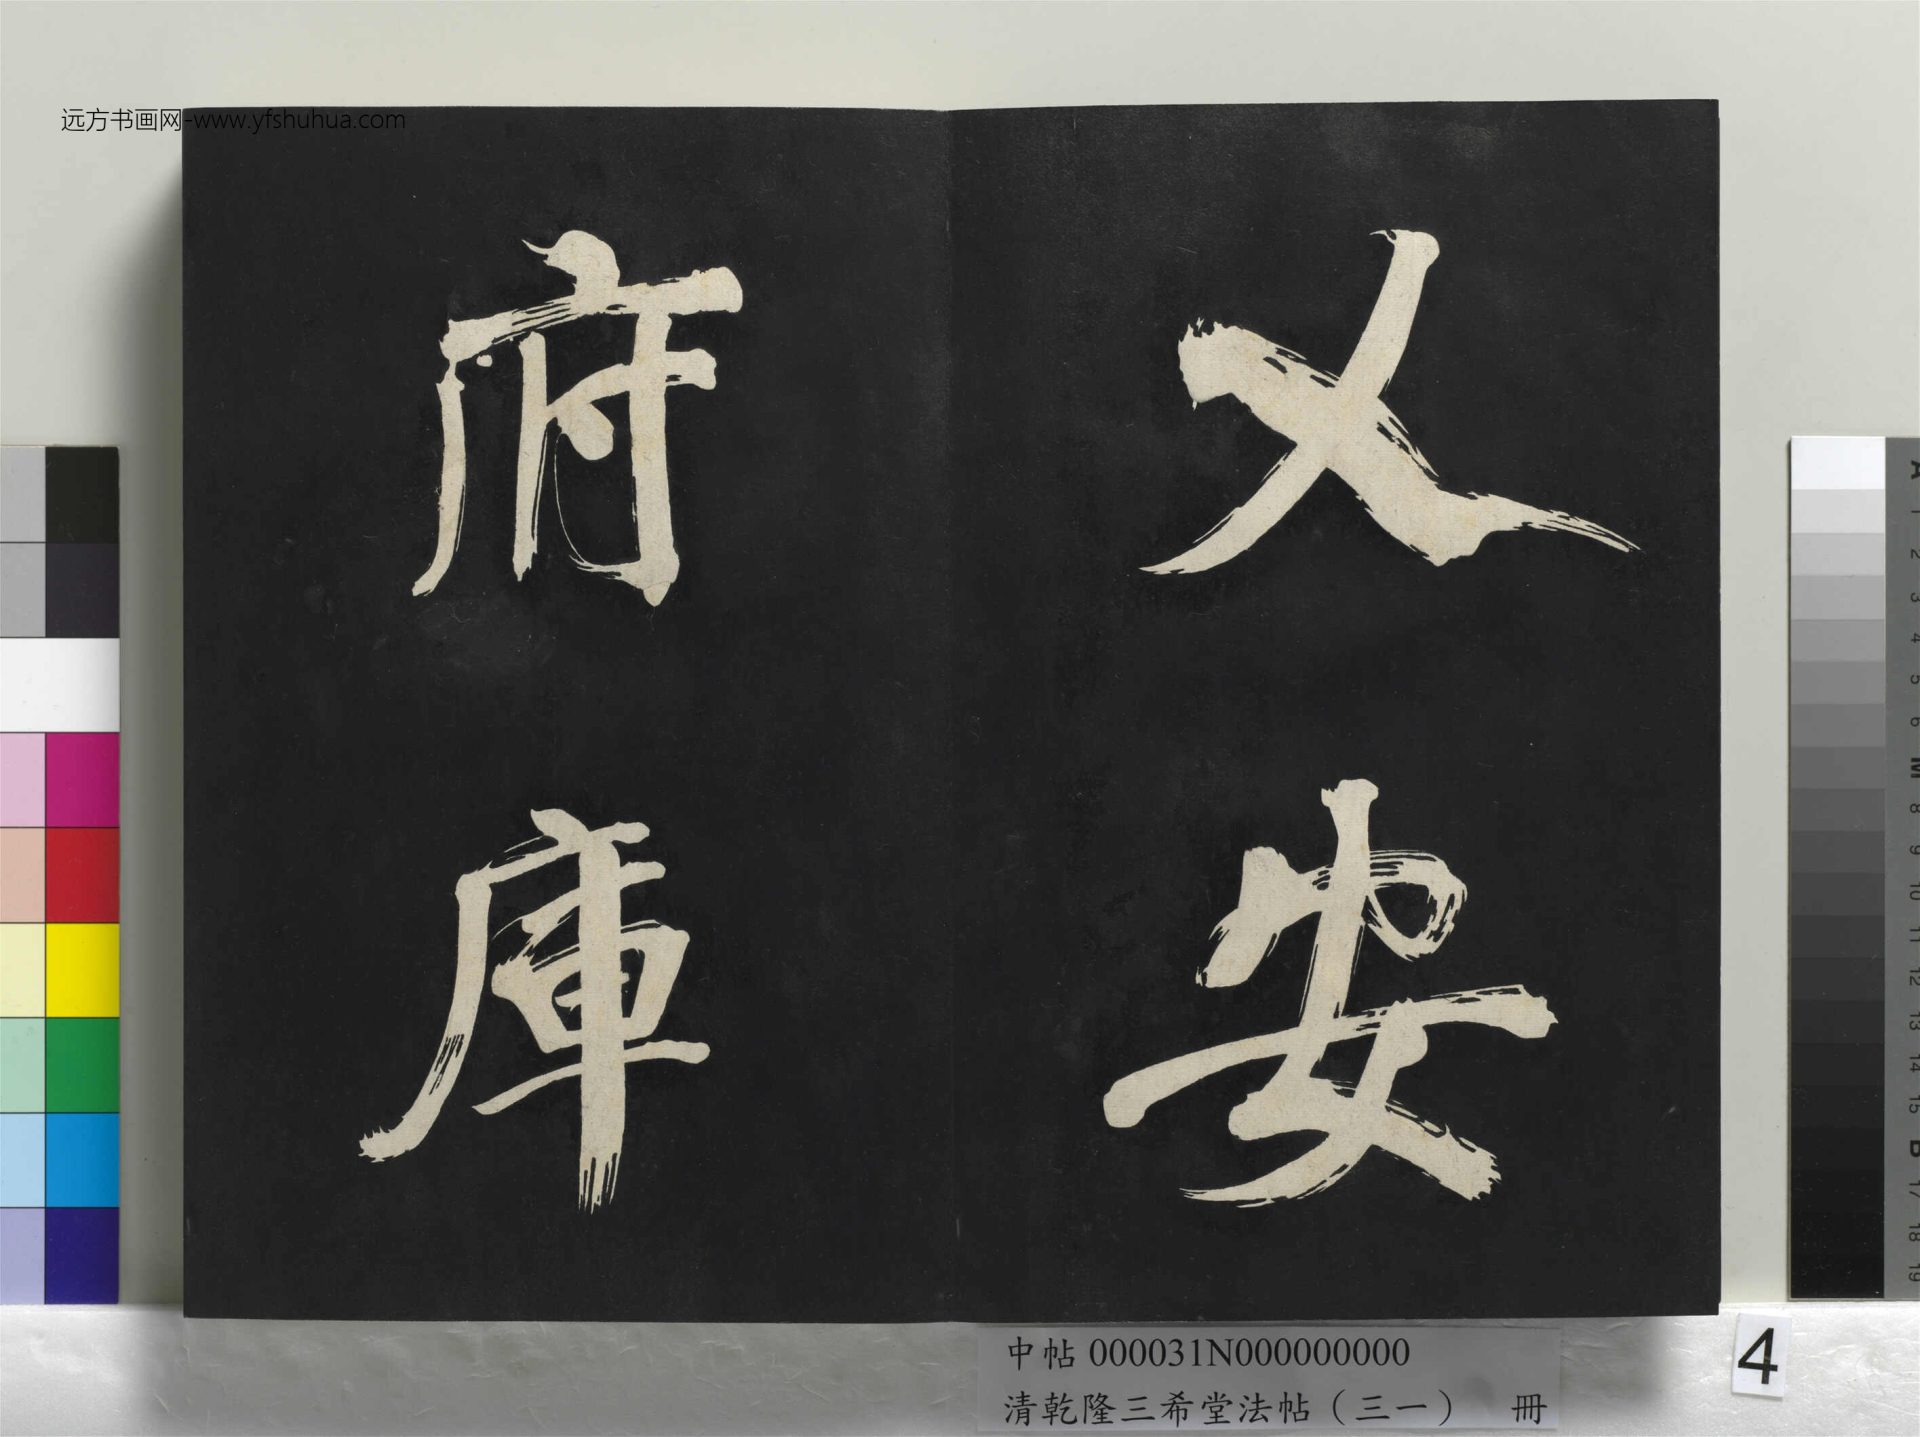 远方书画网-www.yfshuhua.com
乂安
府庫
中帖 000031N000000000
清乾隆三希堂法帖（三一） 冊
4
A 1 2 3 4 5 6 M 8 9 10 11 12 13 14 15 B 17 18 19